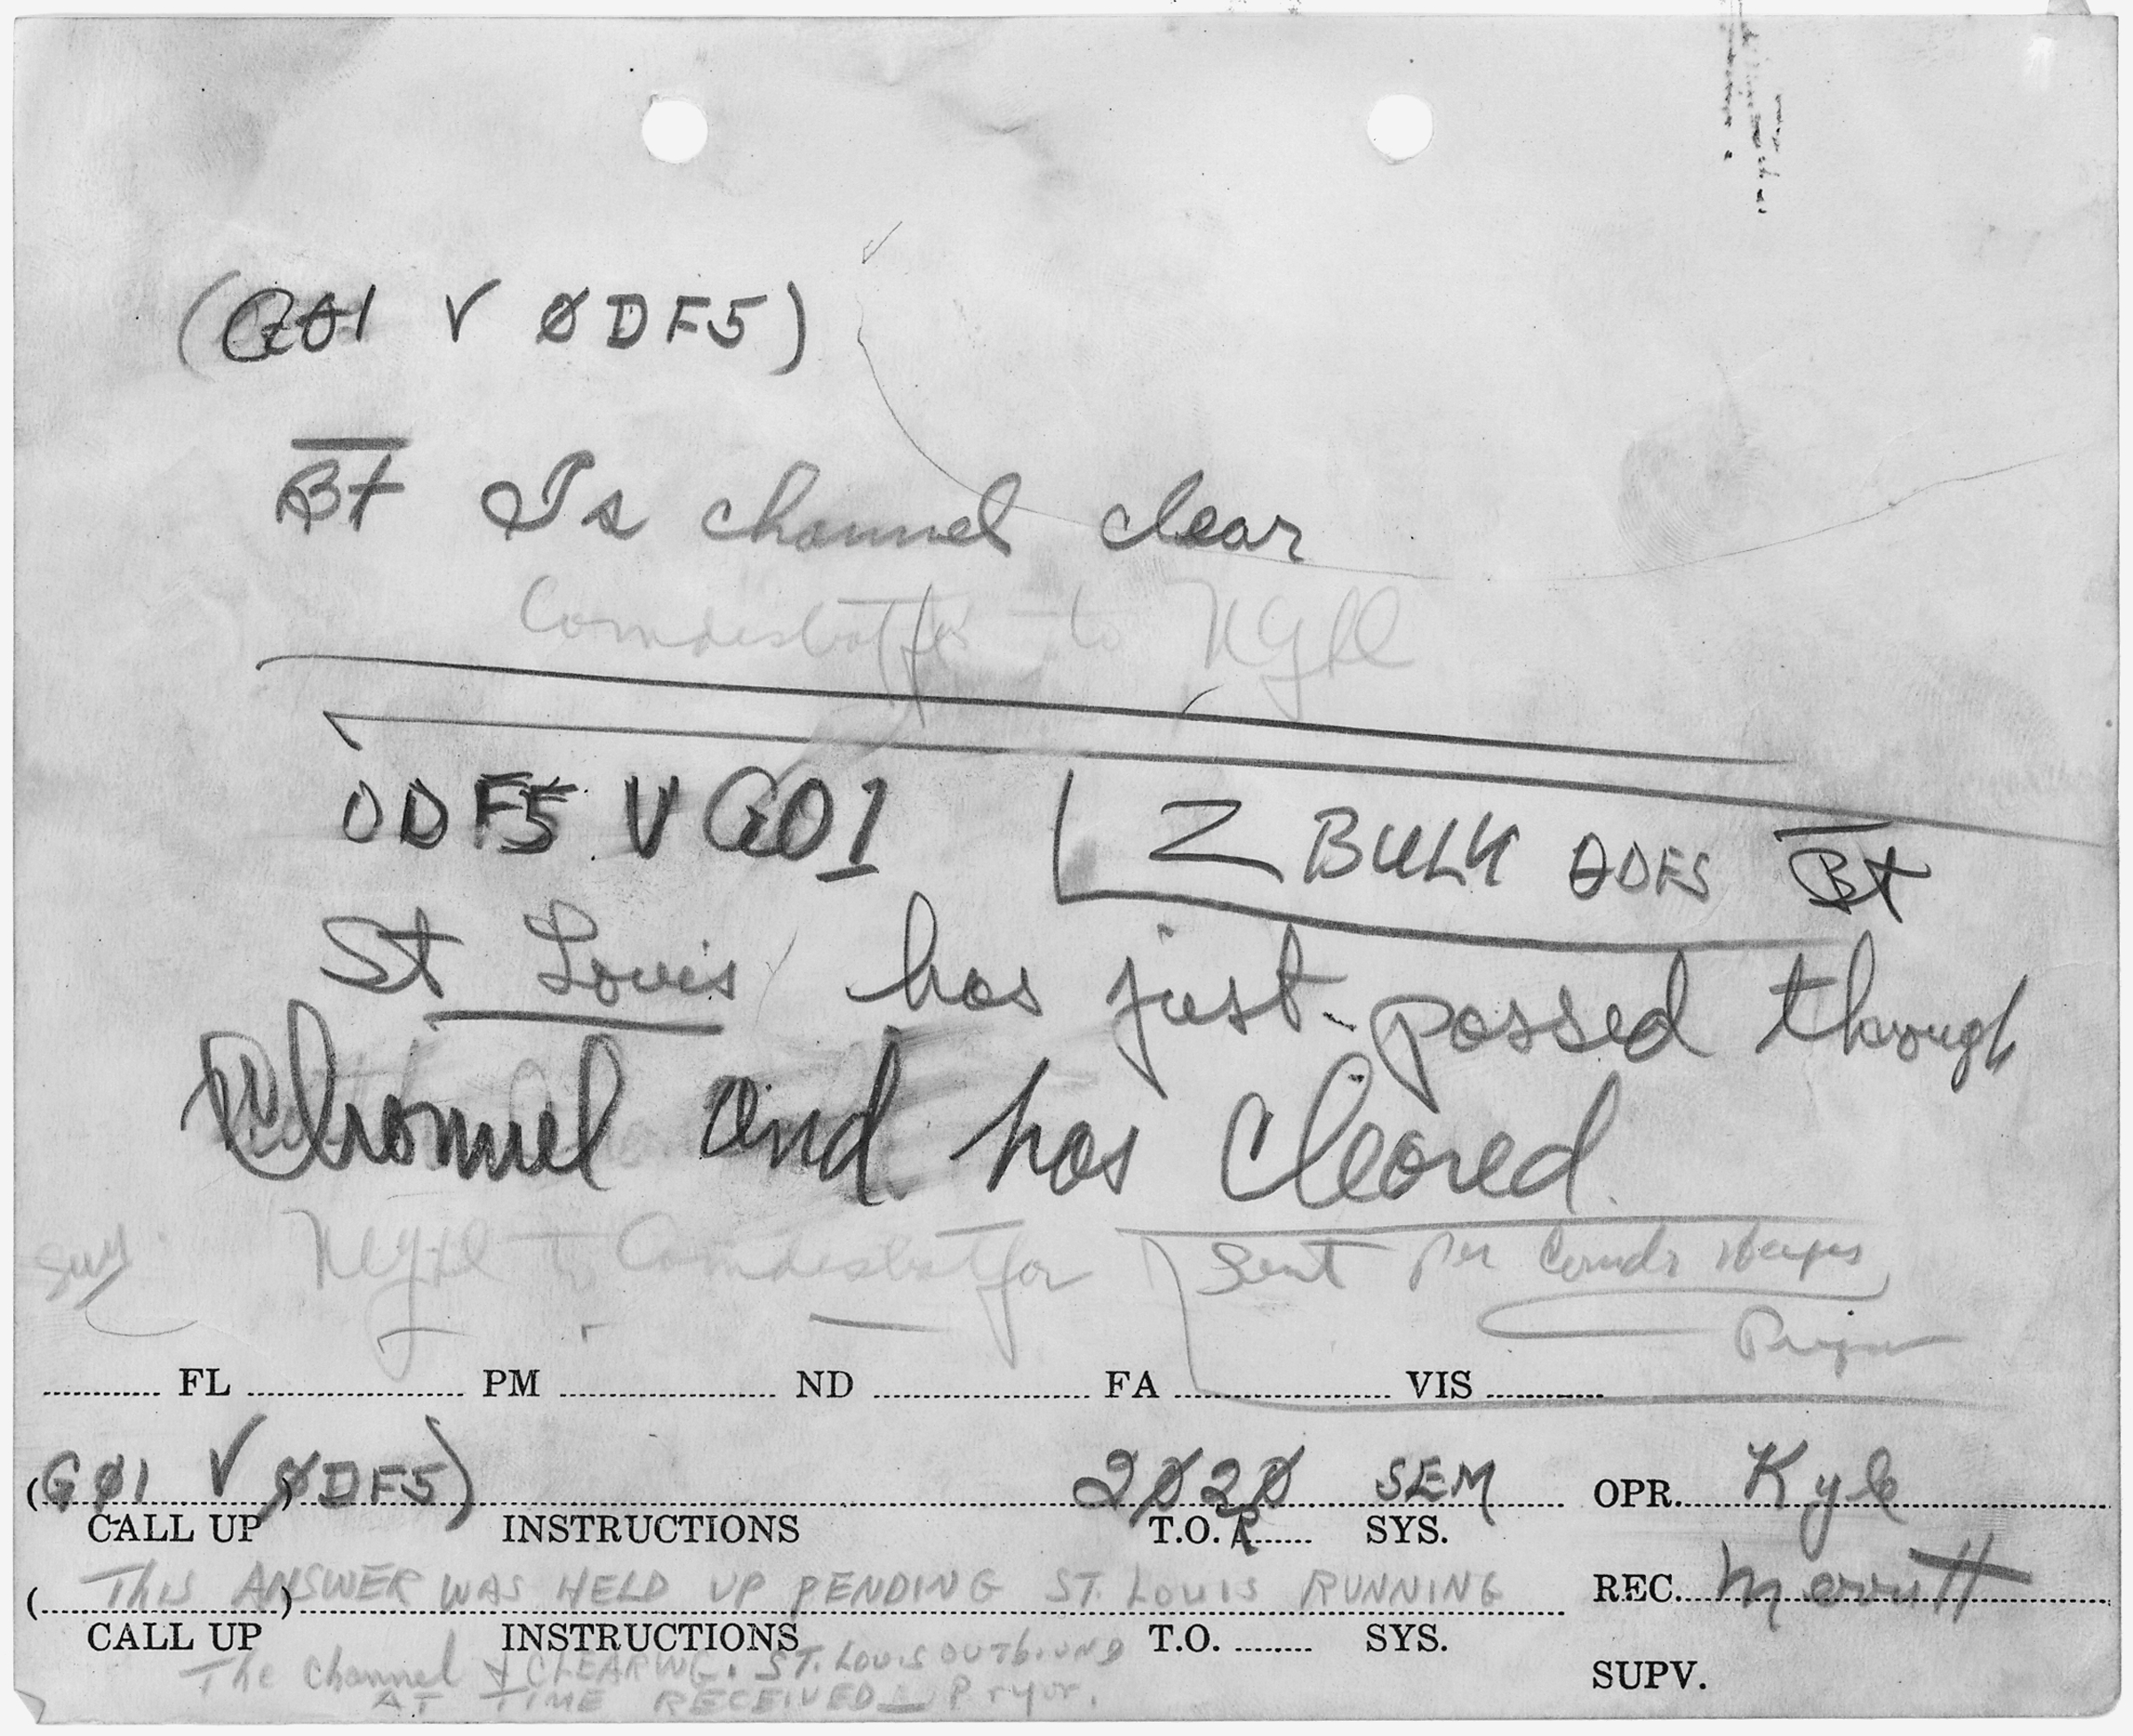 (G01 V ØDF5)
B̅t̅ Is channel clear
Comdesbatfor to NGJL
ODF5 V GO1 Z BULK ODF5 B̅t̅
St Louis has just passed through
Channel and has cleared.
to Comdesbatfor Sent per Comdr
FL PM ND FA VIS
(GØ1 V ØDF5) 2Ø2Ø SEM OPR. Kyle
CALL UP INSTRUCTIONS T.O.R SYS.
(THIS ANSWER WAS HELD UP PENDING ST. LOUIS RUNNING REC. Merritt
CALL UP INSTRUCTIONS T.O. SYS.
The channel & CLEARING. ST. LOUIS OUTBOUND SUPV.
AT TIME RECEIVED — Pryor.